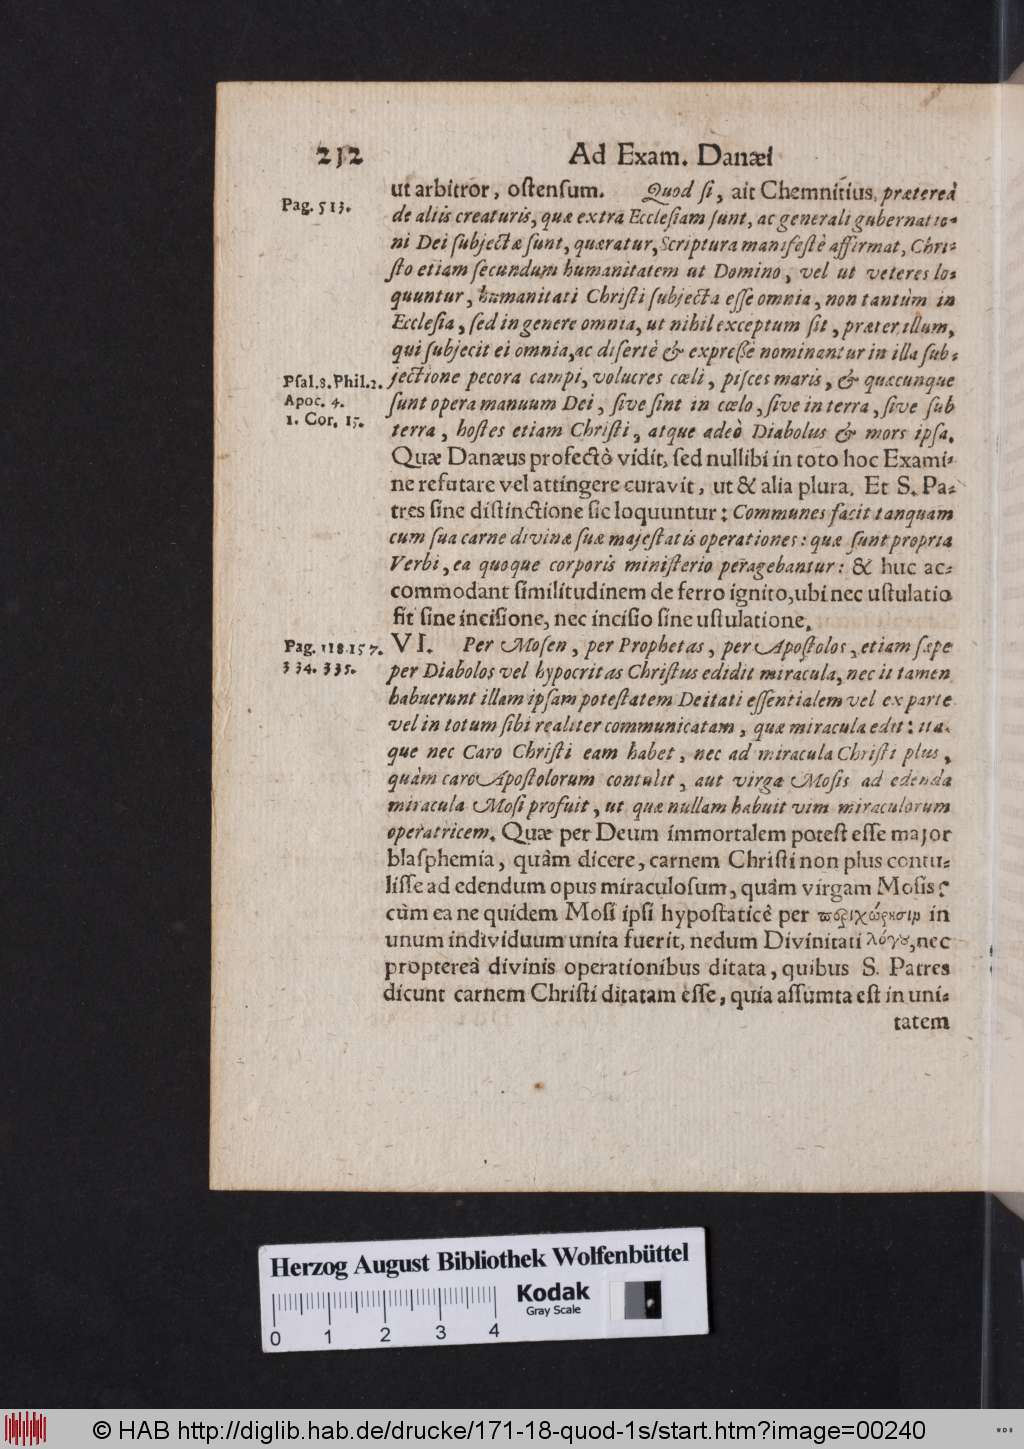 232 Ad Exam. Danæi
ut arbitror, ostensum. Quod si, ait Chemnitius, prætereà
Pag. 513.
de aliis creaturis, quæ extra Ecclesiam sunt, ac generali gubernatio-
ni Dei subjectæ sunt, quæratur, Scriptura manifestè affirmat, Chri-
sto etiam secundum humanitatem ut Domino, vel ut veteres lo-
quuntur, humanitati Christi subjecta esse omnia, non tantùm in
Ecclesia, sed in genere omnia, ut nihil exceptum sit, præter illum,
qui subjecit ei omnia, ac disertè & expressè nominantur in illa sub-
Psal. 8. Phil. 2.
Apoc. 4.
1. Cor. 15.
jectione pecora campi, volucres cœli, pisces maris, & quæcunque
sunt opera manuum Dei, sive sint in cœlo, sive in terra, sive sub
terra, hostes etiam Christi, atque adeò Diabolus & mors ipsa.
Quæ Danæus profectò vidit, sed nullibi in toto hoc Exami-
ne refutare vel attingere curavit, ut & alia plura. Et S. Pa-
tres sine distinctione sic loquuntur: Communes facit tanquam
cum sua carne divinæ suæ majestatis operationes: quæ sunt propria
Verbi, ea quoque corporis ministerio peragebantur: & huc ac-
commodant similitudinem de ferro ignito, ubi nec ustulatio
fit sine incisione, nec incisio sine ustulatione.
Pag. 118. 157.
334. 335.
VI. Per Mosen, per Prophetas, per Apostolos, etiam sæpe
per Diabolos vel hypocritas Christus edidit miracula, nec ii tamen
habuerunt illam ipsam potestatem Deitati essentialem vel ex parte
vel in totum sibi realiter communicatam, quæ miracula edit: ita-
que nec Caro Christi eam habet, nec ad miracula Christi plus,
quàm caro Apostolorum contulit, aut virga Mosis ad edenda
miracula Mosi profuit, ut quæ nullam habuit vim miraculorum
operatricem. Quæ per Deum immortalem potest esse major
blasphemia, quàm dicere, carnem Christi non plus contu-
lisse ad edendum opus miraculosum, quàm virgam Mosis?
cùm ea ne quidem Mosi ipsi hypostaticè per περιχώρησιν in
unum individuum unita fuerit, nedum Divinitati λόγου, nec
proptereà divinis operationibus ditata, quibus S. Patres
dicunt carnem Christi ditatam esse, quia assumta est in uni-
tatem
Herzog August Bibliothek Wolfenbüttel
0 1 2 3 4
Kodak
Gray Scale
© HAB http://diglib.hab.de/drucke/171-18-quod-1s/start.htm?image=00240